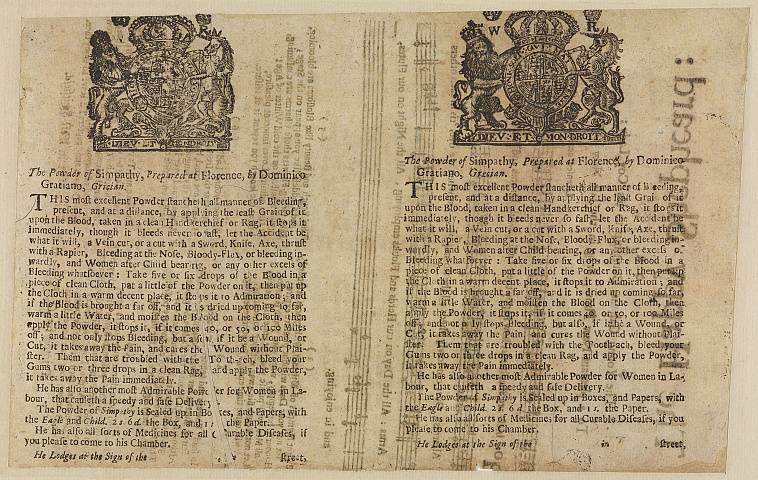 DIEV · ET
The Powder of Simpathy, Prepared at Florence, by Dominico
Gratiano, Grecian.
THIS most excellent Powder stancheth all manner of Bleeding,
present, and at a distance, by applying the least Grain of it
upon the Blood, taken in a clean Handkerchief or Rag, it stops it
immediately, though it bleeds never so fast, let the Accident be
what it will, a Vein cut, or a cut with a Sword, Knife, Axe, thrust
with a Rapier, Bleeding at the Nose, Bloody-Flux, or bleeding in-
wardly, and Women after Child bearing, or any other excess of
Bleeding whatsoever: Take five or six drops of the Blood in a
piece of clean Cloth, put a little of the Powder on it, then put up
the Cloth in a warm decent place, it stops it to Admiration; and
if the Blood is brought a far off, and it is dried up coming so far,
warm a little Water, and moisten the Blood on the Cloth, then
apply the Powder, it stops it, if it comes 40, or 50, or 100 Miles
off; and not only stops Bleeding, but also, if it be a Wound, or
Cut, it takes away the Pain, and cures the Wound without Plai-
ster. Them that are troubled with the Tooth-ach, bleed your
Gums two or three drops in a clean Rag, and apply the Powder,
it takes away the Pain immediately.
He has also another most Admirable Powder for Women in La-
bour, that causeth a speedy and safe Delivery.
The Powder of Simpathy is Sealed up in Boxes, and Papers, with
the Eagle and Child. 2 s. 6 d. the Box, and 1 s. the Paper.
He has also all sorts of Medicines for all Curable Diseases, if
you please to come to his Chamber.
He Lodges at the Sign of the street,
W R
DIEV · ET · MON · DROIT
The Powder of Simpathy, Prepared at Florence, by Dominico
Gratiano, Grecian.
THIS most excellent Powder stancheth all manner of Bleeding,
present, and at a distance, by applying the least Grain of it
upon the Blood, taken in a clean Handkerchief or Rag, it stops it
immediately, though it bleeds never so fast, let the Accident be
what it will, a Vein cut, or a cut with a Sword, Knife, Axe, thrust
with a Rapier, Bleeding at the Nose, Bloody-Flux, or bleeding in-
wardly, and Women after Child-bearing, or any other excess of
Bleeding whatsoever: Take five or six drops of the Blood in a
piece of clean Cloth, put a little of the Powder on it, then put up
the Cloth in a warm decent place, it stops it to Admiration; and
if the Blood is brought a far off, and it is dried up coming so far,
warm a little Water, and moisten the Blood on the Cloth, then
apply the Powder, it stops it, if it comes 40, or 50, or 100 Miles
off; and not only stops Bleeding, but also, if it be a Wound, or
Cut, it takes away the Pain, and cures the Wound without Plai-
ster. Them that are troubled with the Tooth-ach, bleed your
Gums two or three drops in a clean Rag, and apply the Powder,
it takes away the Pain immediately.
He has also another most Admirable Powder for Women in La-
bour, that causeth a speedy and safe Delivery.
The Powder of Simpathy is Sealed up in Boxes, and Papers, with
the Eagle and Child. 2 s. 6 d. the Box, and 1 s. the Paper.
He has also all sorts of Medicines for all Curable Diseases, if you
please to come to his Chamber.
He Lodges at the Sign of the in street,